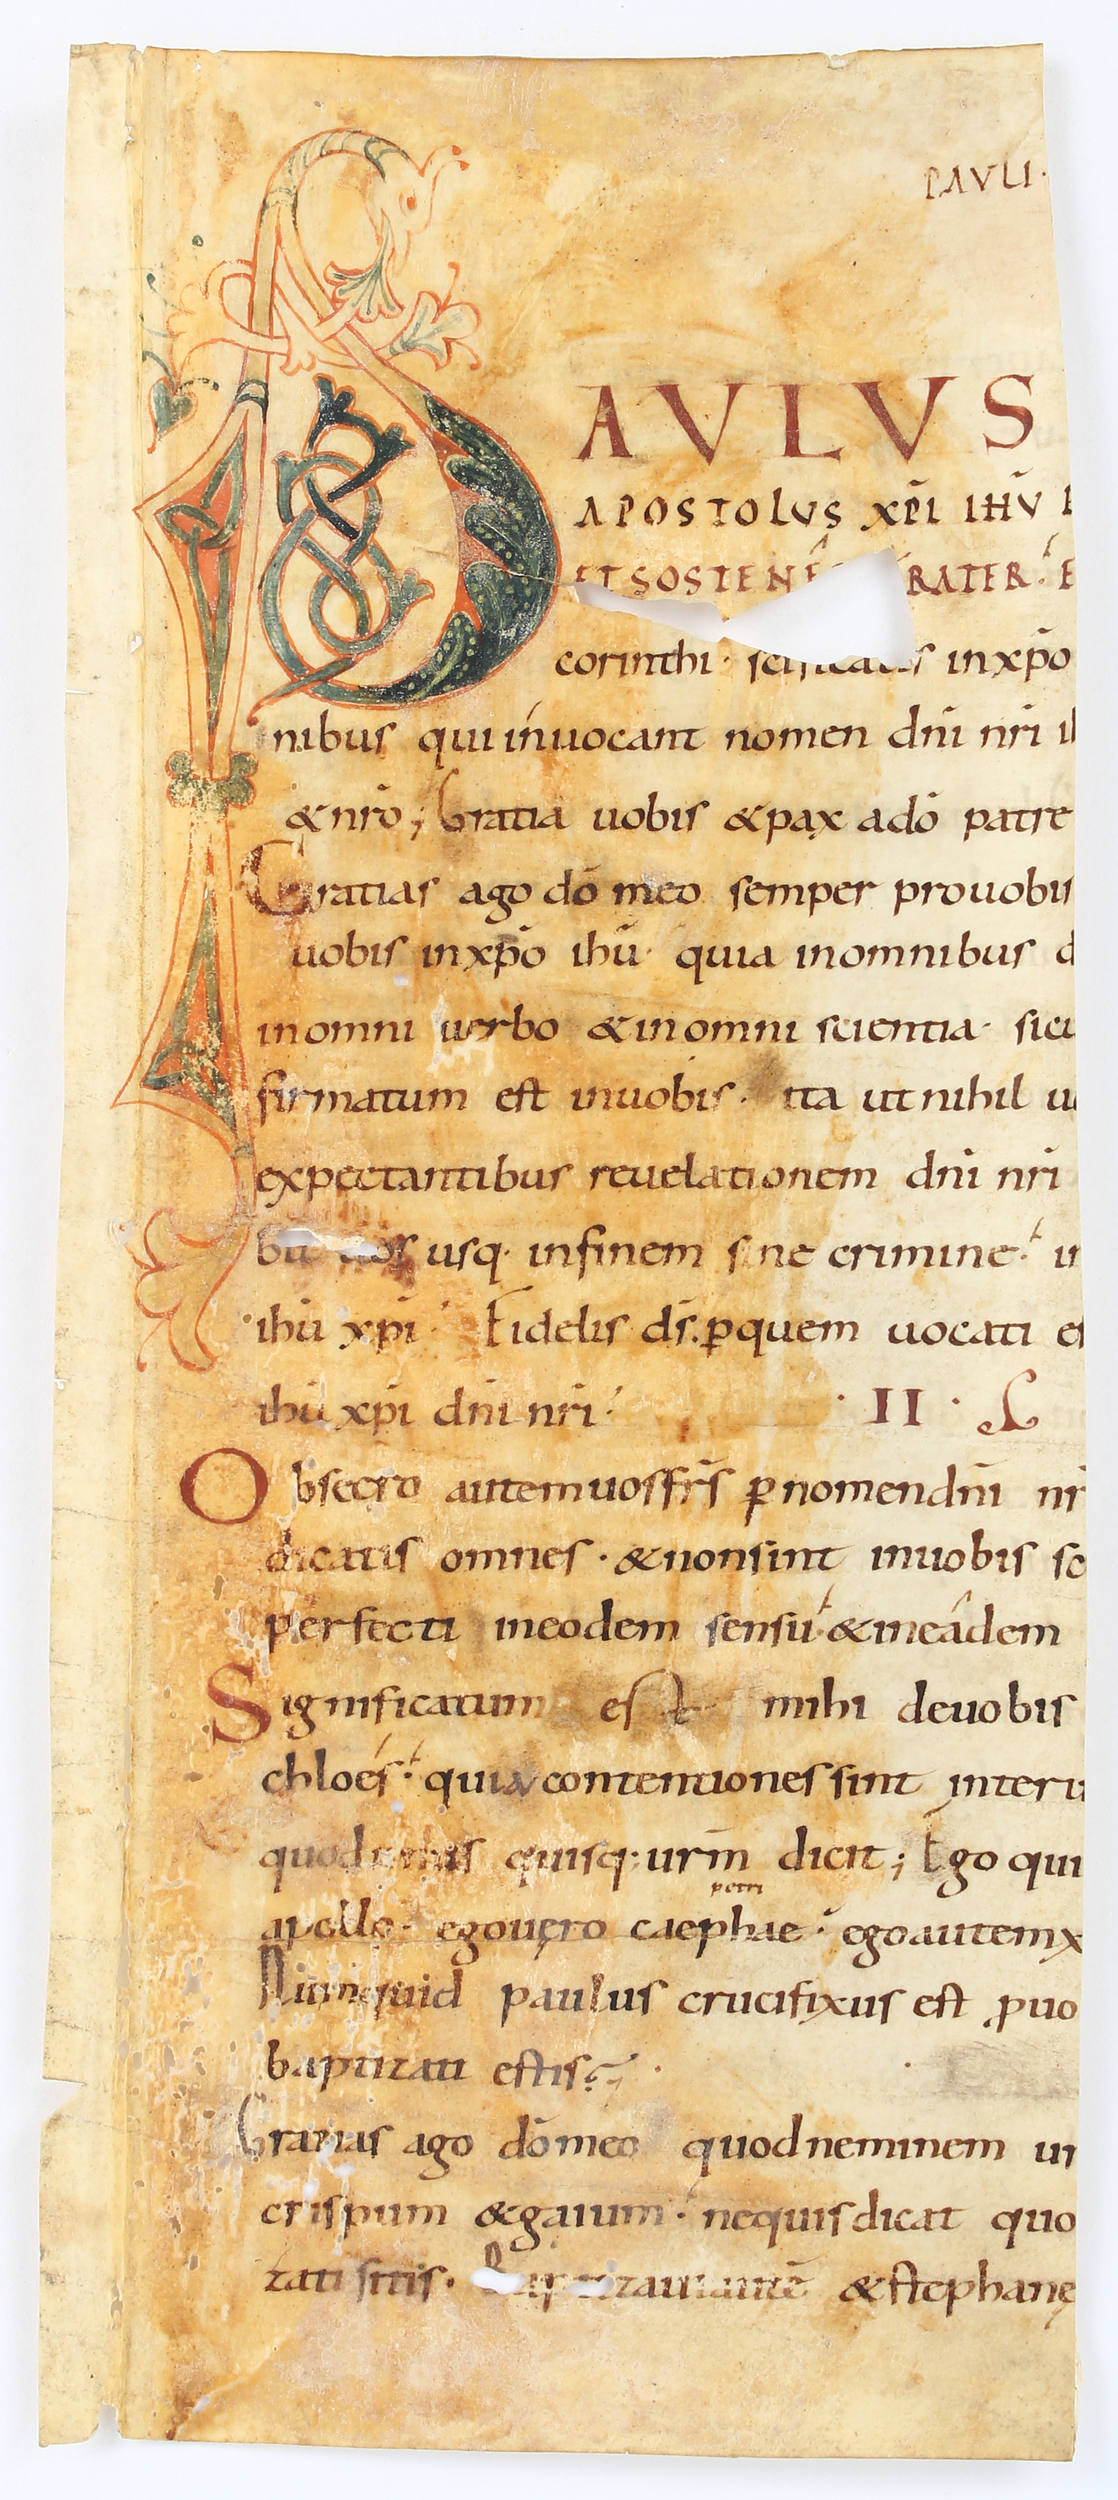 PAVLI·
PAVLVS
APOSTOLVS XP̄I IHV̄
ET SOSTEN RATER·
corinthi· inxp̄o
nibus qui inuocant nomen dn̄i nr̄i
&nr̄o; Gratia uobis &pax adō patre
Gratias ago dō meo semper prouobis
uobis inxp̄o ihū· quia inomnibus
inomni uerbo &inomni scientia·
firmatum est inuobis· ita ut nihil
expectantibus reuelationem dn̄i nr̄i
usq· infinem sine crimine·
ihū xp̄i· Fidelis ds̄· ꝑquem uocati
ihū xp̄i dn̄i nr̄i·
·II·
Obsecro autem uos fr̄s ꝑnomen dn̄i
dicatis omnes· &nonsint inuobis
perfecti ineodem sensu &ineadem
Significatum est mihi deuobis
chloes· quia contentiones sint
quisq· ur̄m dicit; Ego
petri
apollo· egouero caephae· egoautem
Numquid paulus crucifixus est
baptizati estis?
Gratias ago dō meo quodneminem
crispum &gaium· nequis dicat
zati sitis· &stephanę